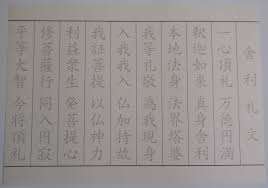 舎利礼文
一心頂礼 万徳円満
釈迦如来 真身舎利
本地法身 法界塔婆
我等礼敬 為我現身
入我我入 仏加持故
我証菩提 以仏神力
利益衆生 発菩提心
修菩薩行 同入円寂
平等大智 今将頂礼